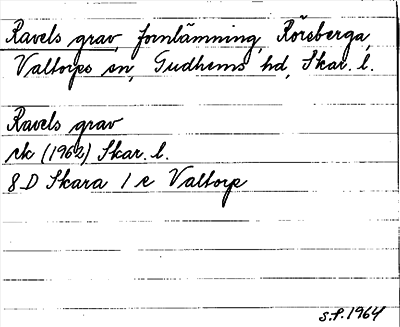 Ravels grav, fornlämning, Rörsberga,
Valtorps sn, Gudhems hd, Skar. l.
Ravels grav
ek (1962) Skar. l.
8 D Skara 1 e Valtorp
S.P. 1964